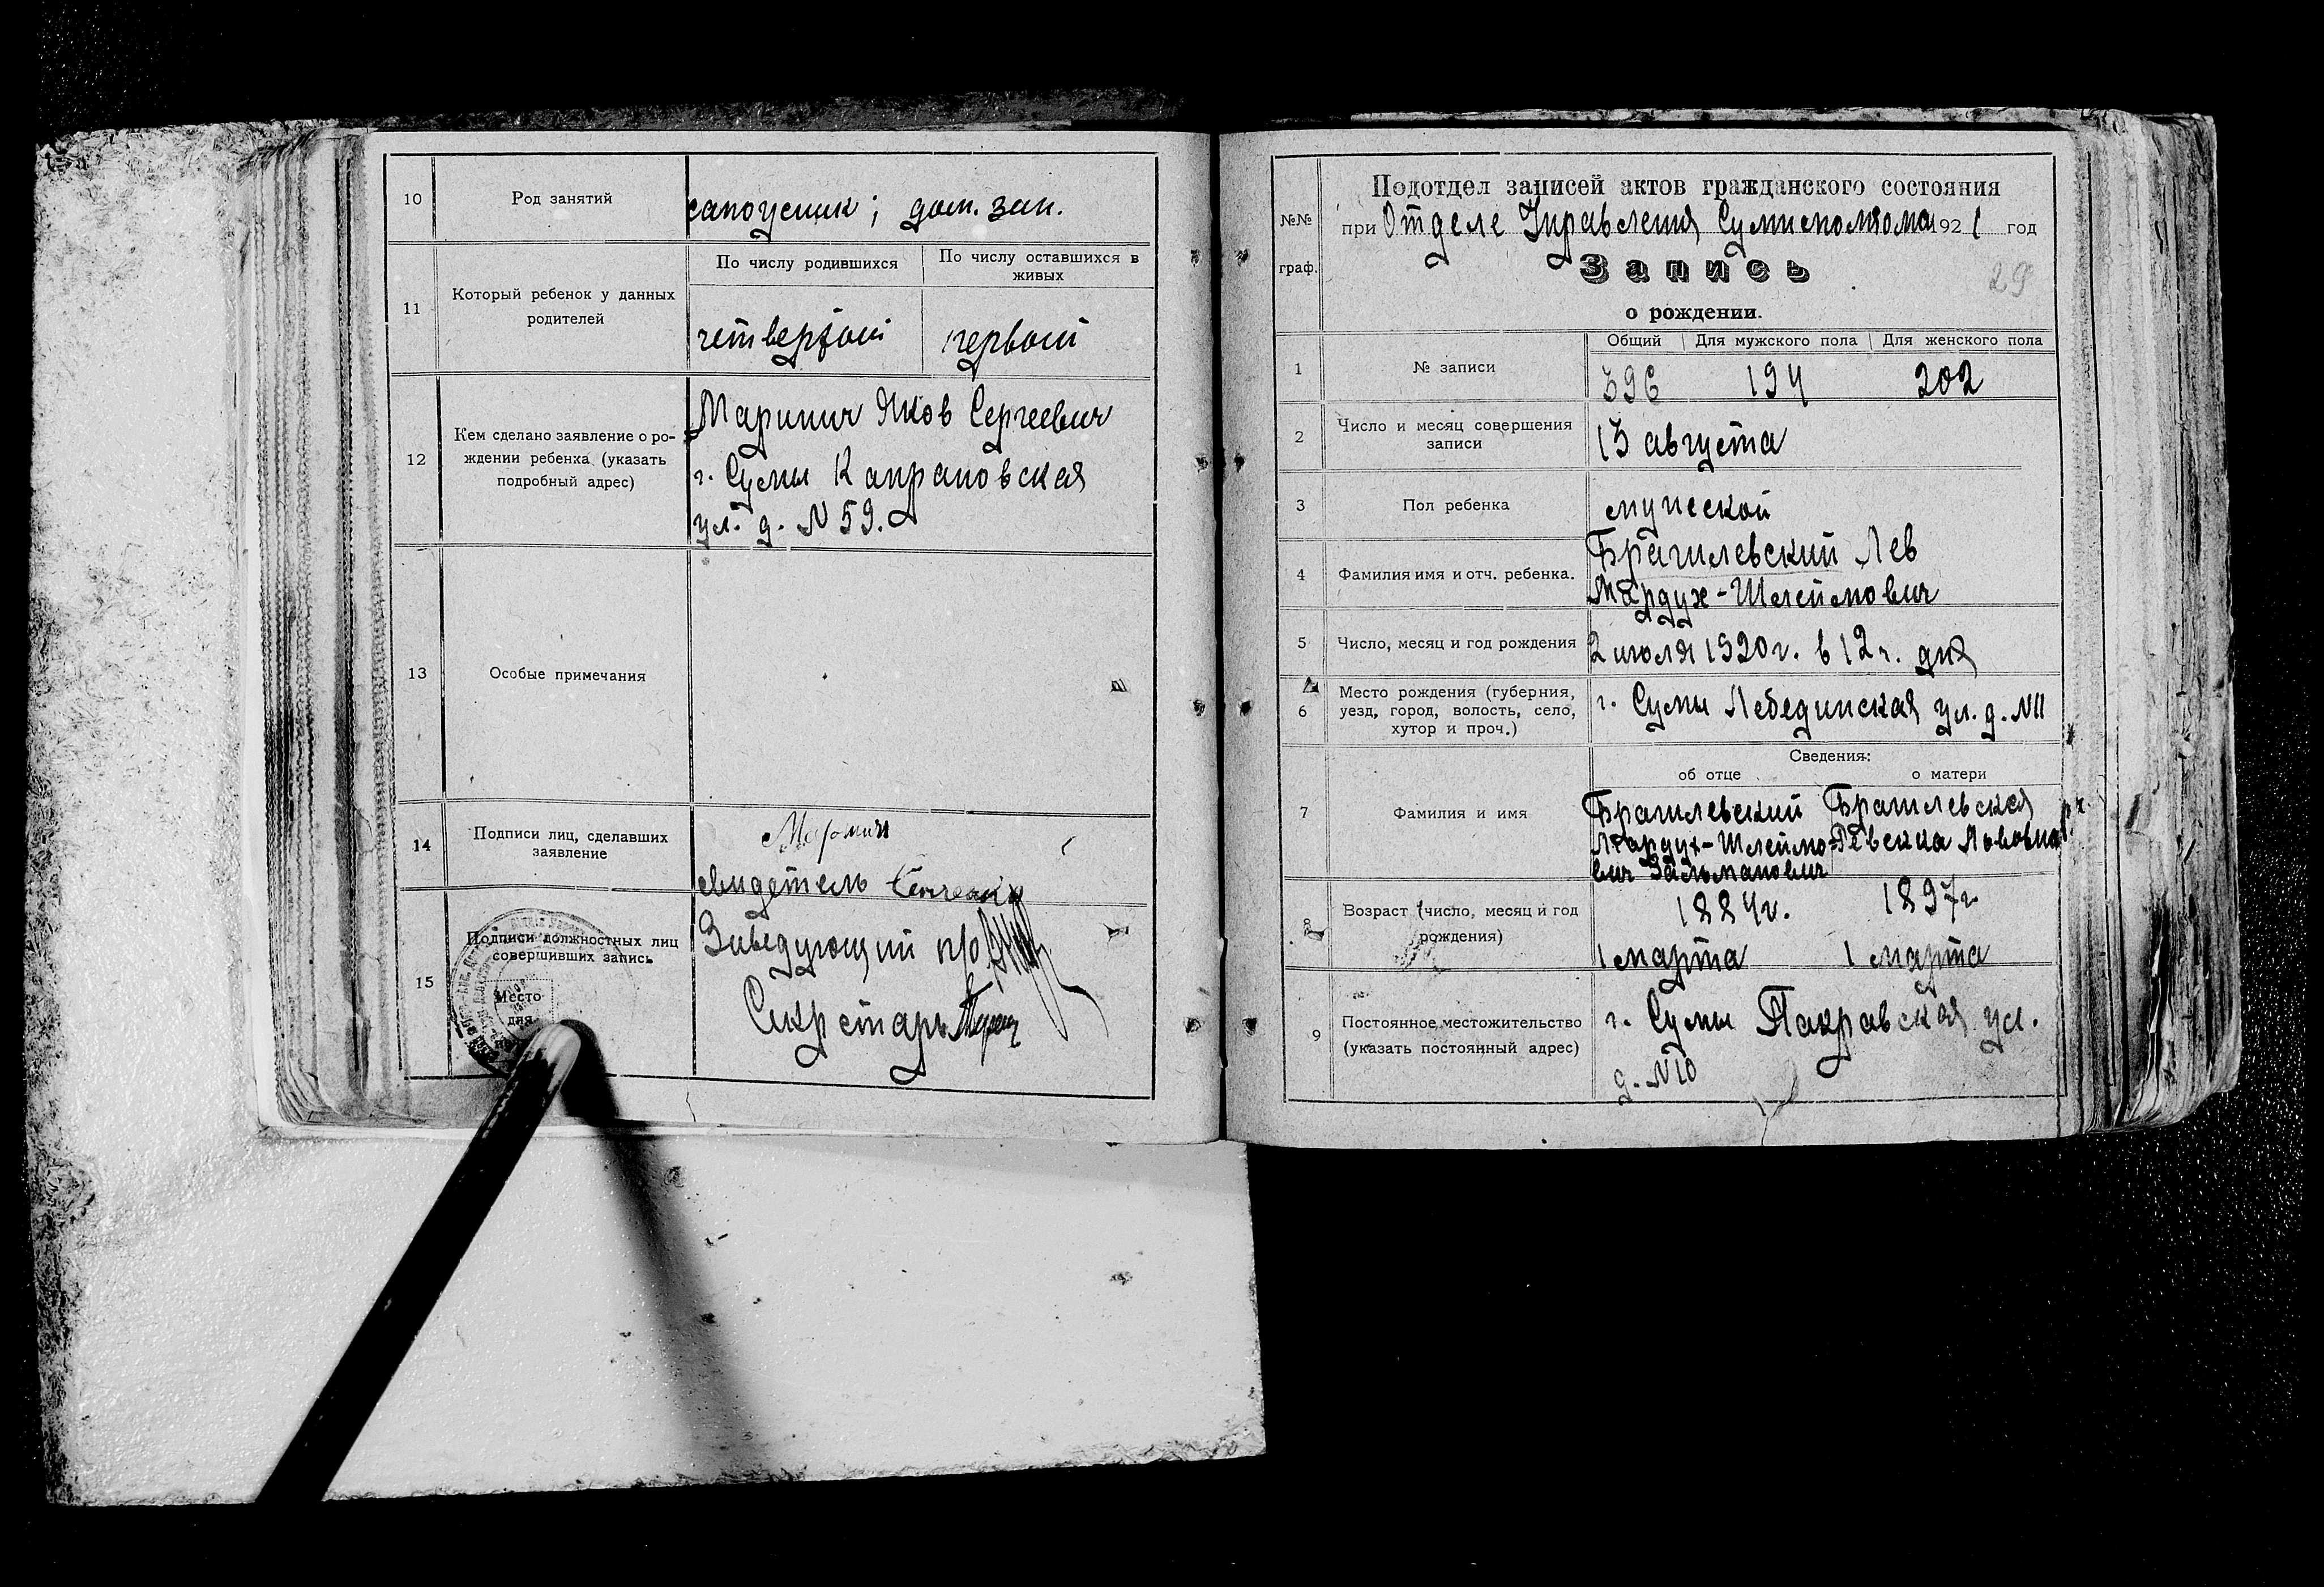 10 Род занятий сапожник; дом. зан.
11 Который ребенок у данных родителей
По числу родившихся
По числу оставшихся в живых
четвертый
первый
12 Кем сделано заявление о рождении ребенка (указать подробный адрес)
Маринич Яков Сергеевич
г. Сумы Капрановская
ул. д. N 59.
13 Особые примечания
14 Подписи лиц, сделавших заявление
Маринич
свидетель
15 Подписи должностных лиц совершивших запись
Заведующий п/о
Место
для
Секретарь
№№ граф.
Подотдел записей актов гражданского состояния
при Отделе Управления Сумисполкома 1921 год
Запись
29
о рождении.
1 № записи
Общий Для мужского пола Для женского пола
396 194 202
2 Число и месяц совершения записи
13 августа
3 Пол ребенка
мужеской
4 Фамилия имя и отч. ребенка.
Брагилевский Лев
Мардух-Шлеймович
5 Число, месяц и год рождения
2 июля 1920г. в 12ч. дня
6 Место рождения (губерния, уезд, город, волость, село, хутор и проч.)
г. Сумы Лебединская ул. д. N11
Сведения:
об отце о матери
7 Фамилия и имя
Брагилевский Мардух-Шлеймович Зальманович
Брагилевская Ревекка Лвовна
8 Возраст (число, месяц и год рождения)
1884г. 1897г
1 марта 1 марта
9 Постоянное местожительство (указать постоянный адрес)
г. Сумы Пакравская ул.
д. N10